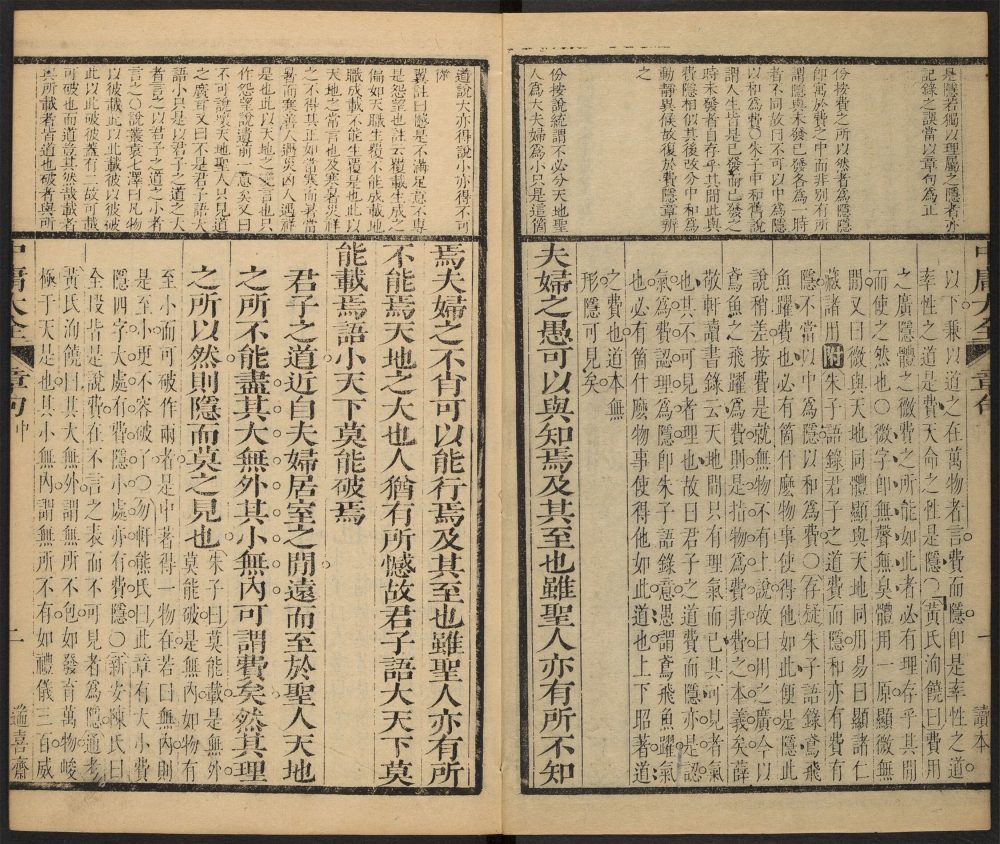 是隱若獨以理屬之隱者亦
記錄之誤當以章句為正
份按費之所以然者為隱隱
即寓於費之中而非別有所
謂隱與未發已發各為一時
者不同故曰不可以中為隱
以和為費○朱子中和舊說
謂人生皆是已發而已發之
時未發者自存乎其間此與
費隱相似其後改分中和為
動靜異候故復於費隱章辨
之
份按說統謂不必分天地聖
人為大夫婦為小只是這箇
中庸大全 章句 一 讀本
以下兼以道之在萬物者言費而隱即是率性之道
率性之道是費天命之性是隱○黃氏洵饒曰費用
之廣隱體之微費之所能如此者必有理存乎其間
而使之然也○微字即無聲無臭體用一原顯微無
間又曰微與天地同體顯與天地同用易曰顯諸仁
藏諸用附朱子語錄君子之道費而隱和亦有費有
隱不當以中為隱以和為費○存疑朱子語錄鳶飛
魚躍費也必有箇什麼物事使得他如此便是隱此
說稍差按費是就無物不有上說故曰用之廣今以
鳶魚之飛躍為費則是指物為費非費之本義矣薛
敬軒讀書錄云天地間只有理氣而已其可見者氣
也其不可見者理也故曰君子之道費而隱亦是認
氣為費認理為隱即朱子語錄意愚謂鳶飛魚躍氣
也必有箇什麼物事使得他如此道也上下昭著道
之費也道本無
形隱可見矣
夫婦之愚可以與知焉及其至也雖聖人亦有所不知
道說大亦得說小亦得不可
翼註曰憾是不滿足意不專
是怨望也註云覆載生成之
偏如天職生覆不能成載地
職成載不能生覆是也此以
天地之常言也及寒暑災祥
之不得其正如當寒而暑當
暑而寒善人遇災凶人遇祥
是也此以天地之變言也只
作怨望說遺前一意矣又曰
不可說壞天地聖人只見道
之廣耳又曰不是君子語大
語小只是以君子之道之大
者言之以君子之道之小者
言之○說叢袁七澤曰凡物
以彼載此以此載彼以彼破
此以此破彼蓋有二故可載
可破也而道豈其然哉載者
與所載者皆道也破者與所
焉夫婦之不肖可以能行焉及其至也雖聖人亦有所
不能焉天地之大也人猶有所憾故君子語大天下莫
能載焉語小天下莫能破焉
君子之道近自夫婦居室之間遠而至於聖人天地
之所不能盡其大無外其小無內可謂費矣然其理
之所以然則隱而莫之見也 朱子曰莫能載是無外
莫能破是無內如物有
至小而可破作兩者是中者得一物在若曰無內則
是至小更不容破了○勿軒熊氏曰此章有大小費
隱四字大處有費隱小處亦有費隱○新安陳氏曰
全段皆是說費在不言之表而不可見者為隱通考
黃氏洵饒曰其大無外謂無所不包如發育萬物峻
極于天是也其小無內謂無所不有如禮儀三百威
中庸大全 章句中 二 遄喜齋